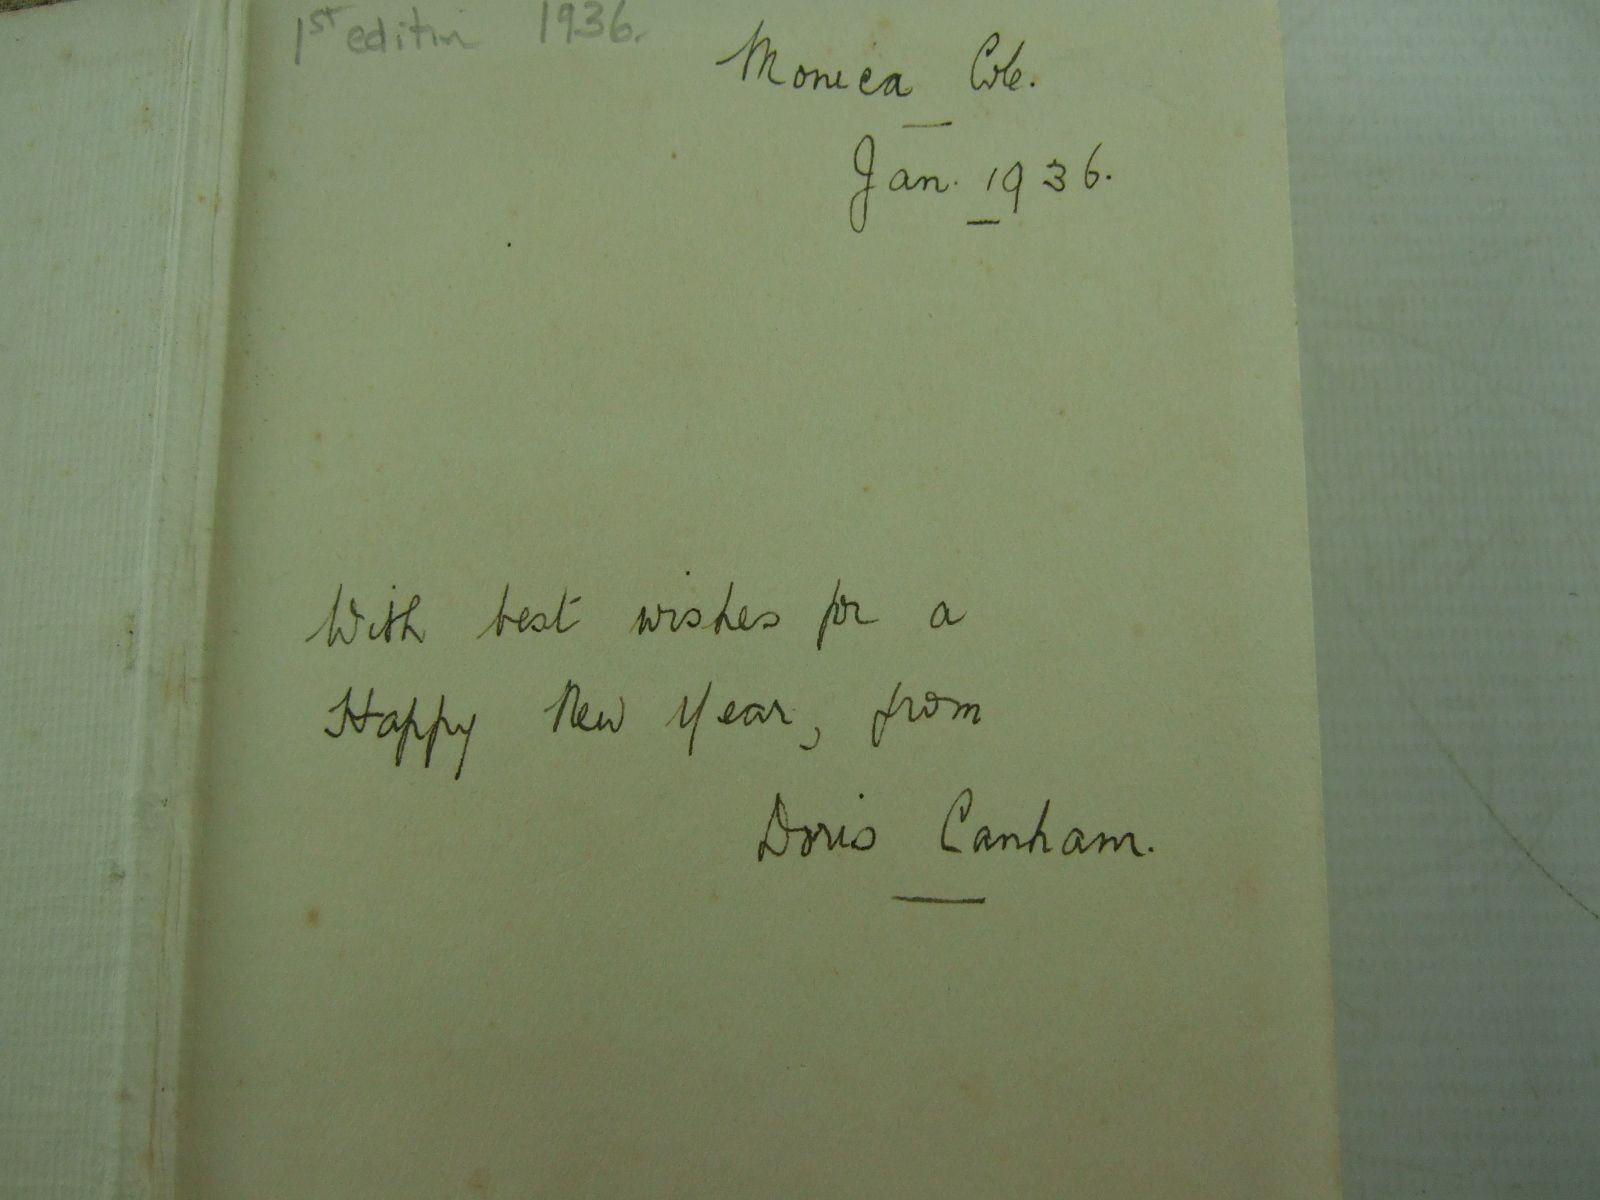 1st edition 1936.
Monica Cole.
Jan. 1936.
With best wishes for a
Happy New Year, from
Doris Canham.